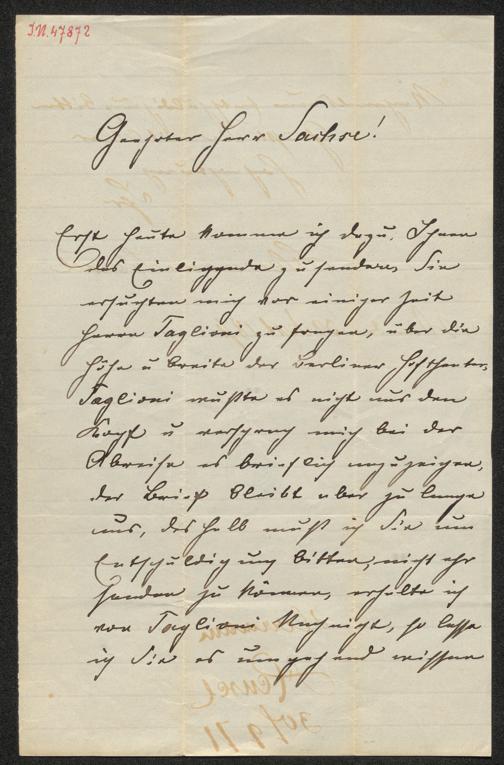 I.N. 47872
Geehrter Herr Sachse!
Erst heute komme ich dazu, Ihnen
das Einliegende zu senden, Sie
ersuchten mich vor einiger Zeit
Herrn Taglioni zu fragen, über die
Höhe u breite der Berliner Hoftheater,
Taglioni wußte es nicht aus dem
Kopf u versprach mir bei der
Abreise es brieflich anzuzeigen,
der Brief bleibt aber zu lange
aus, deshalb muß ich Sie um
Entschuldigung bitten, nicht eher
senden zu können, erhalte ich
von Taglioni Nachricht, so lasse
ich Sie es umgehend wissen